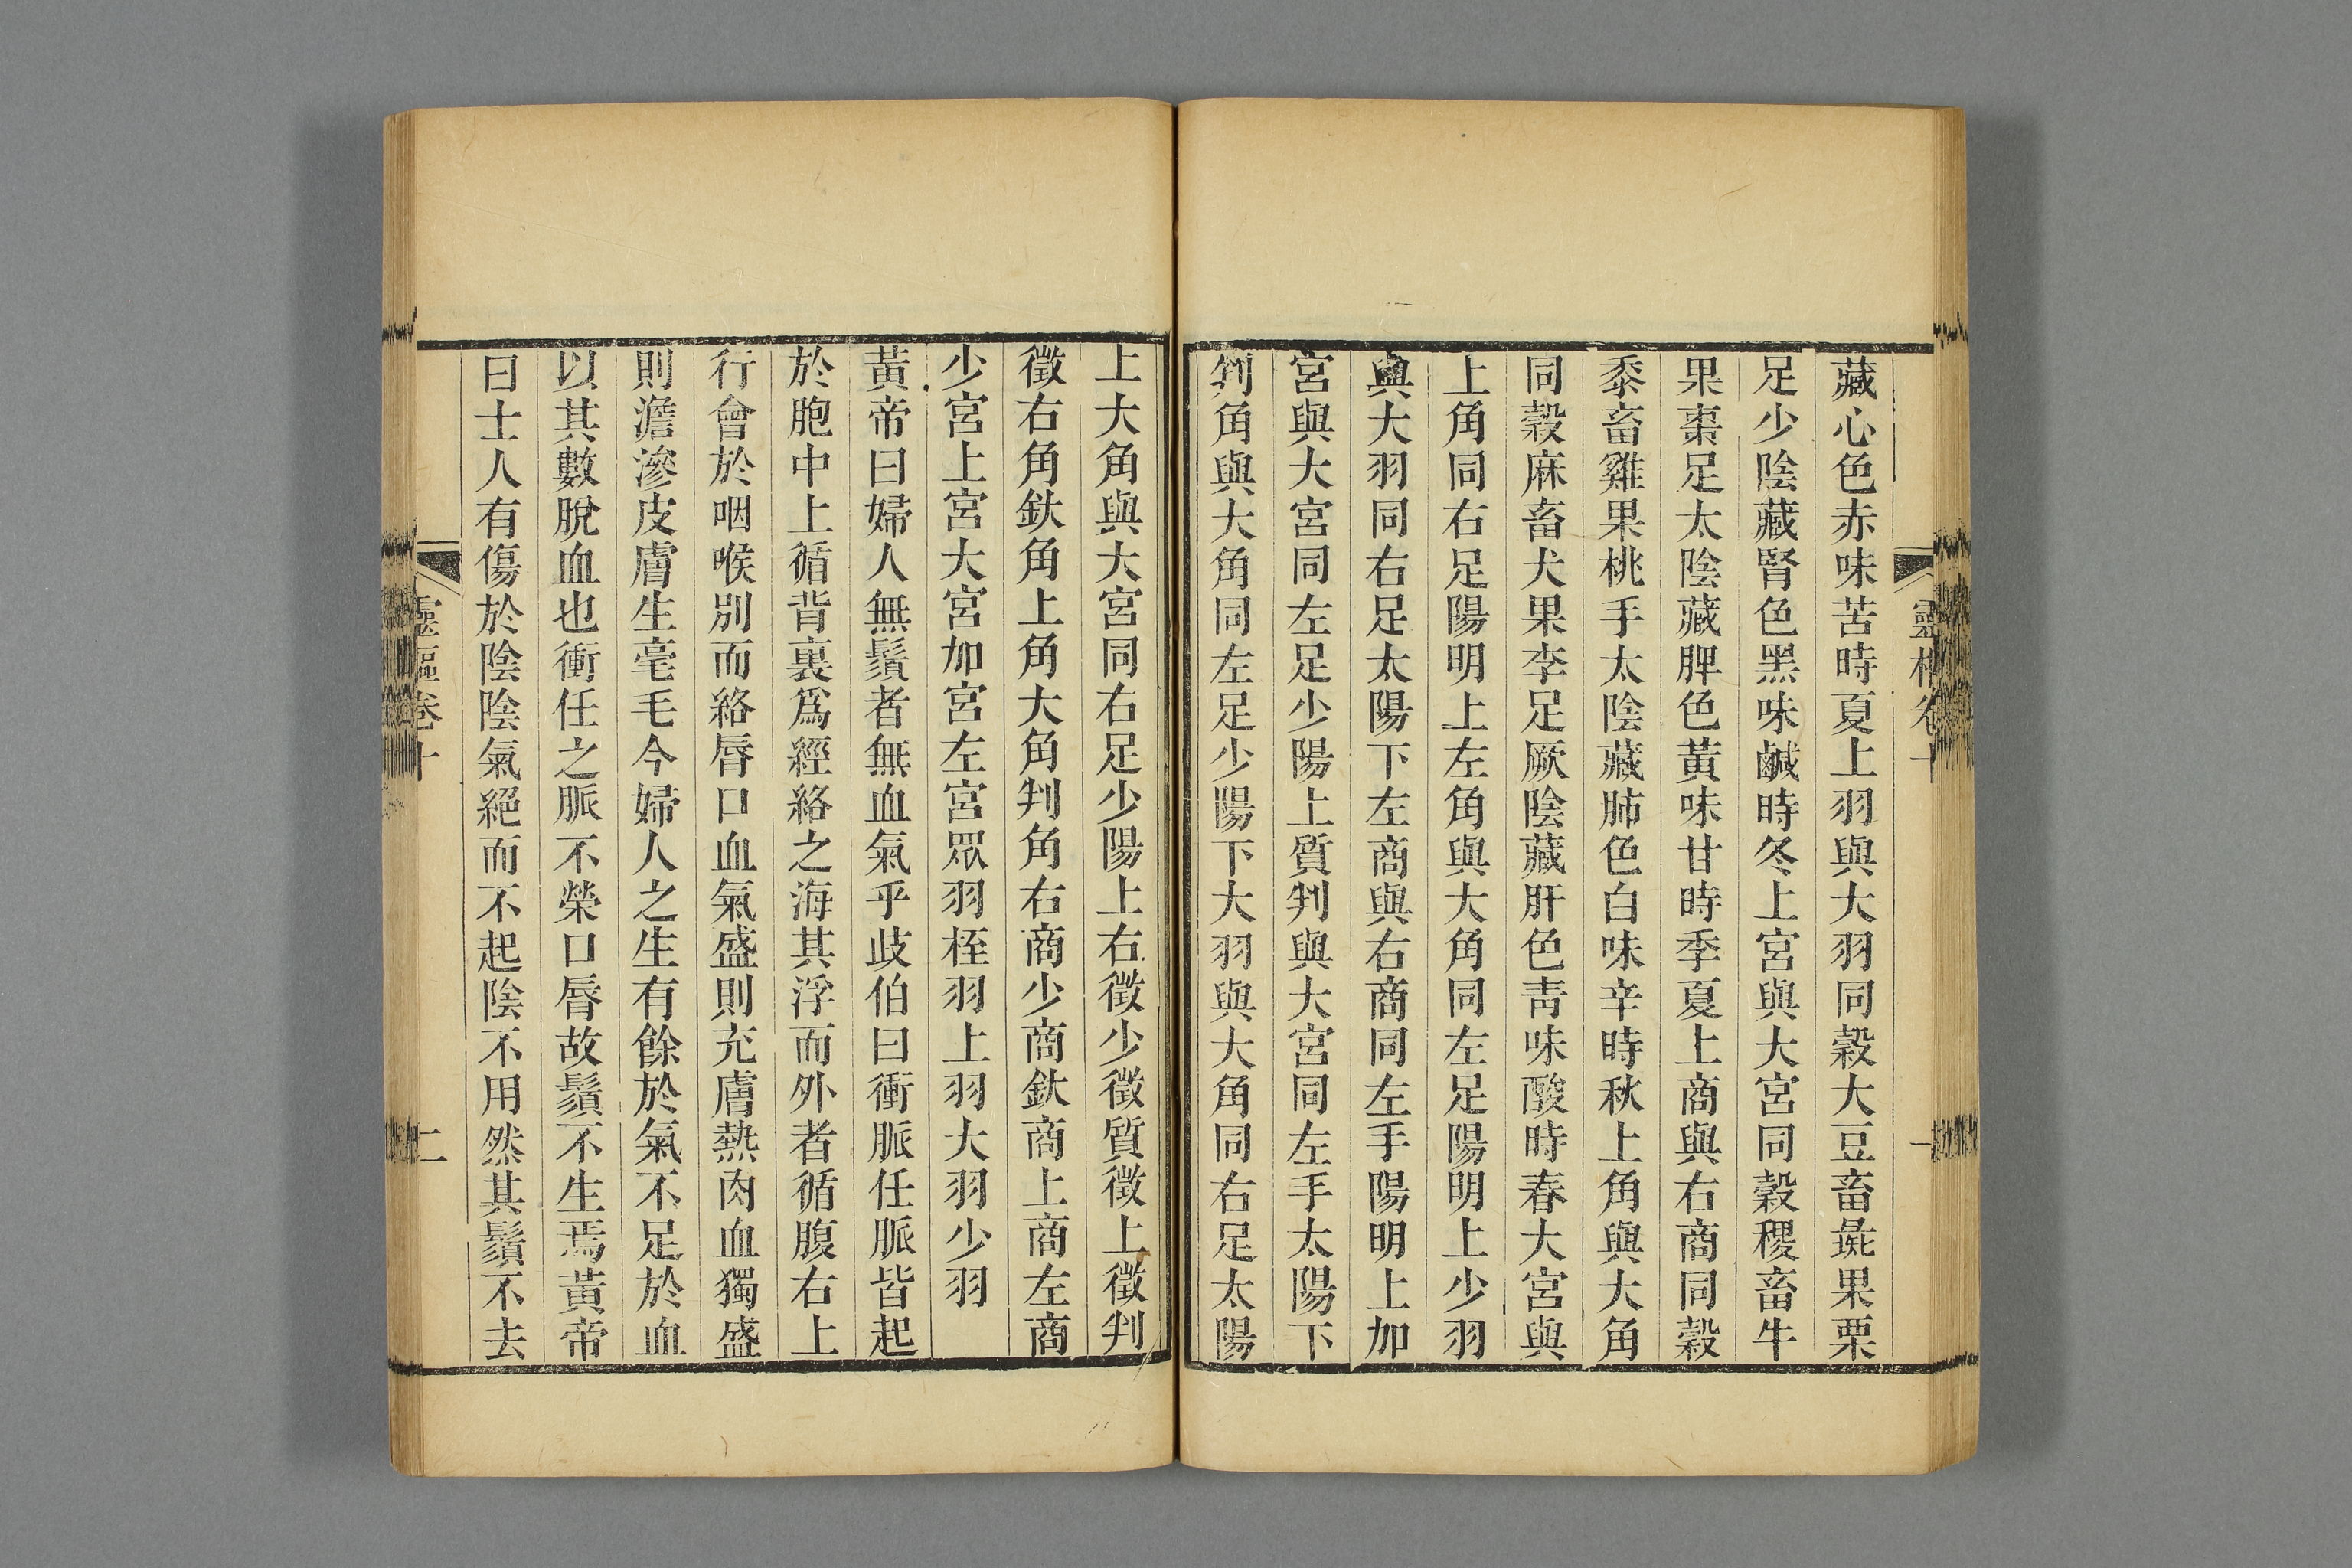 靈樞卷十
一
藏心色赤味苦時夏上羽與大羽同穀大豆畜彘果栗
足少陰藏腎色黑味鹹時冬上宮與大宮同穀稷畜牛
果棗足太陰藏脾色黃味甘時季夏上商與右商同穀
黍畜雞果桃手太陰藏肺色白味辛時秋上角與大角
同穀麻畜犬果李足厥陰藏肝色靑味酸時春大宮與
上角同右足陽明上左角與大角同左足陽明上少羽
與大羽同右足太陽下左商與右商同左手陽明上加
宮與大宮同左足少陽上質判與大宮同左手太陽下
判角與大角同左足少陽下大羽與大角同右足太陽
上大角與大宮同右足少陽上右徵少徵質徵上徵判
徵右角釱角上角大角判角右商少商釱商上商左商
少宮上宮大宮加宮左宮眾羽桎羽上羽大羽少羽
黃帝曰婦人無鬚者無血氣乎歧伯曰衝脈任脈皆起
於胞中上循背裏爲經絡之海其浮而外者循腹右上
行會於咽喉別而絡脣口血氣盛則充膚熱肉血獨盛
則澹滲皮膚生毫毛今婦人之生有餘於氣不足於血
以其數脫血也衝任之脈不榮口脣故鬚不生焉黃帝
曰士人有傷於陰陰氣絕而不起陰不用然其鬚不去
靈樞卷十
二